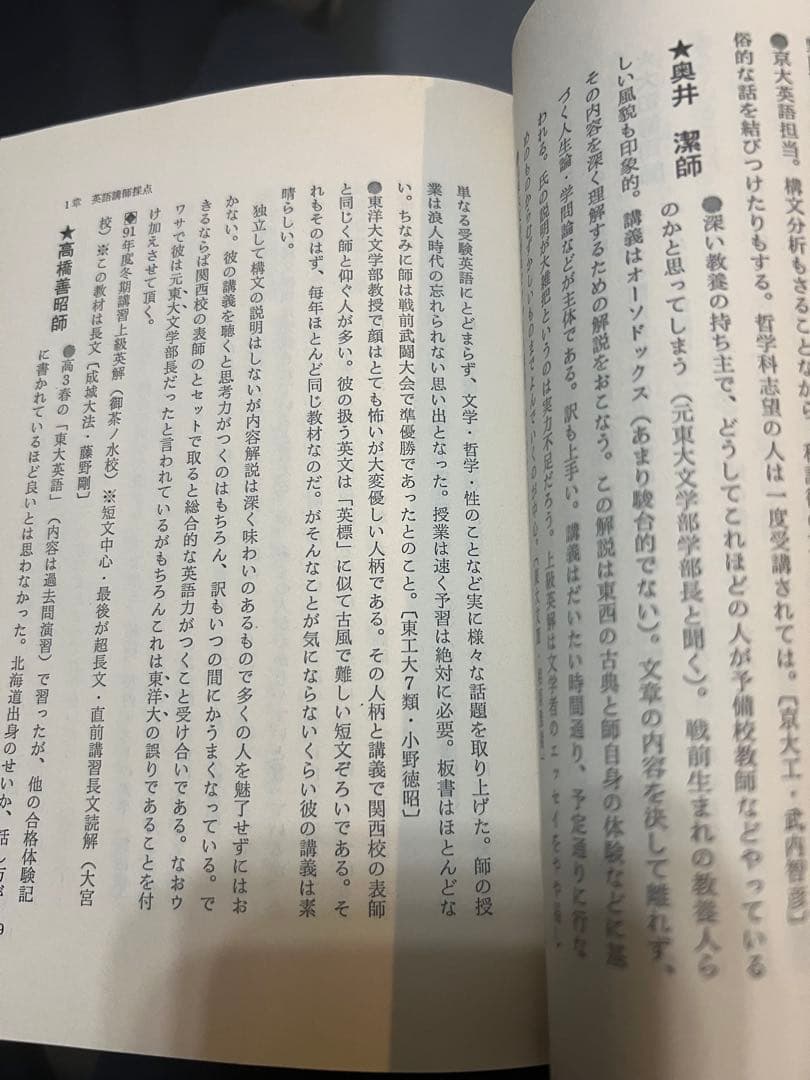 ●京大英語担当。構文分析もさることながら、
俗的な話を結びつけたりもする。哲学科志望の人は一度受講されては。〔京大工・武内智彦〕
★奥井　潔師
●深い教養の持ち主で、どうしてこれほどの人が予備校教師などやっている
のかと思ってしまう（元東大文学部学部長と聞く）。戦前生まれの教養人ら
しい風貌も印象的。講義はオーソドックス（あまり駿台的でない）。文章の内容を決して離れず、
その内容を深く理解するための解説をおこなう。この解説は東西の古典と師自身の体験などに基
づく人生論・学問論などが主体である。訳も上手い。講義はだいたい時間通り、予定通りに行な
われる。氏の説明が大雑把というのは実力不足だろう。上級英解は文学者のエッセイをやや易し
単なる受験英語にとどまらず、文学・哲学・性のことなど実に様々な話題を取り上げた。師の授
業は浪人時代の忘れられない思い出となった。授業は速く予習は絶対に必要。板書はほとんどな
い。ちなみに師は戦前武闘大会で準優勝であったとのこと。〔東工大7類・小野徳昭〕
●東洋大文学部教授で顔はとても怖いが大変優しい人柄である。その人柄と講義で関西校の表師
と同じく師と仰ぐ人が多い。彼の扱う英文は「英標」に似て古風で難しい短文ぞろいである。そ
れもそのはず、毎年ほとんど同じ教材なのだ。がそんなことが気にならないくらい彼の講義は素
晴らしい。
独立して構文の説明はしないが内容解説は深く味わいのあるもので多くの人を魅了せずにはお
かない。彼の講義を聴くと思考力がつくのはもちろん、訳もいつの間にかうまくなっている。で
きるならば関西校の表師のとセットで取ると総合的な英語力がつくこと受け合いである。なおウ
ワサで彼は元東大文学部長だったと言われているがもちろんこれは東洋大の誤りであることを付
け加えさせて頂く。
◆91年度冬期講習上級英解（御茶ノ水校）※短文中心・最後が超長文・直前講習長文読解（大宮
校）※この教材は長文〔成城大法・藤野剛〕
★高橋善昭師
●高3春の「東大英語」（内容は過去問演習）で習ったが、他の合格体験記
に書かれているほど良いとは思わなかった。北海道出身のせいか、話し方が
1章　英語講師採点
9